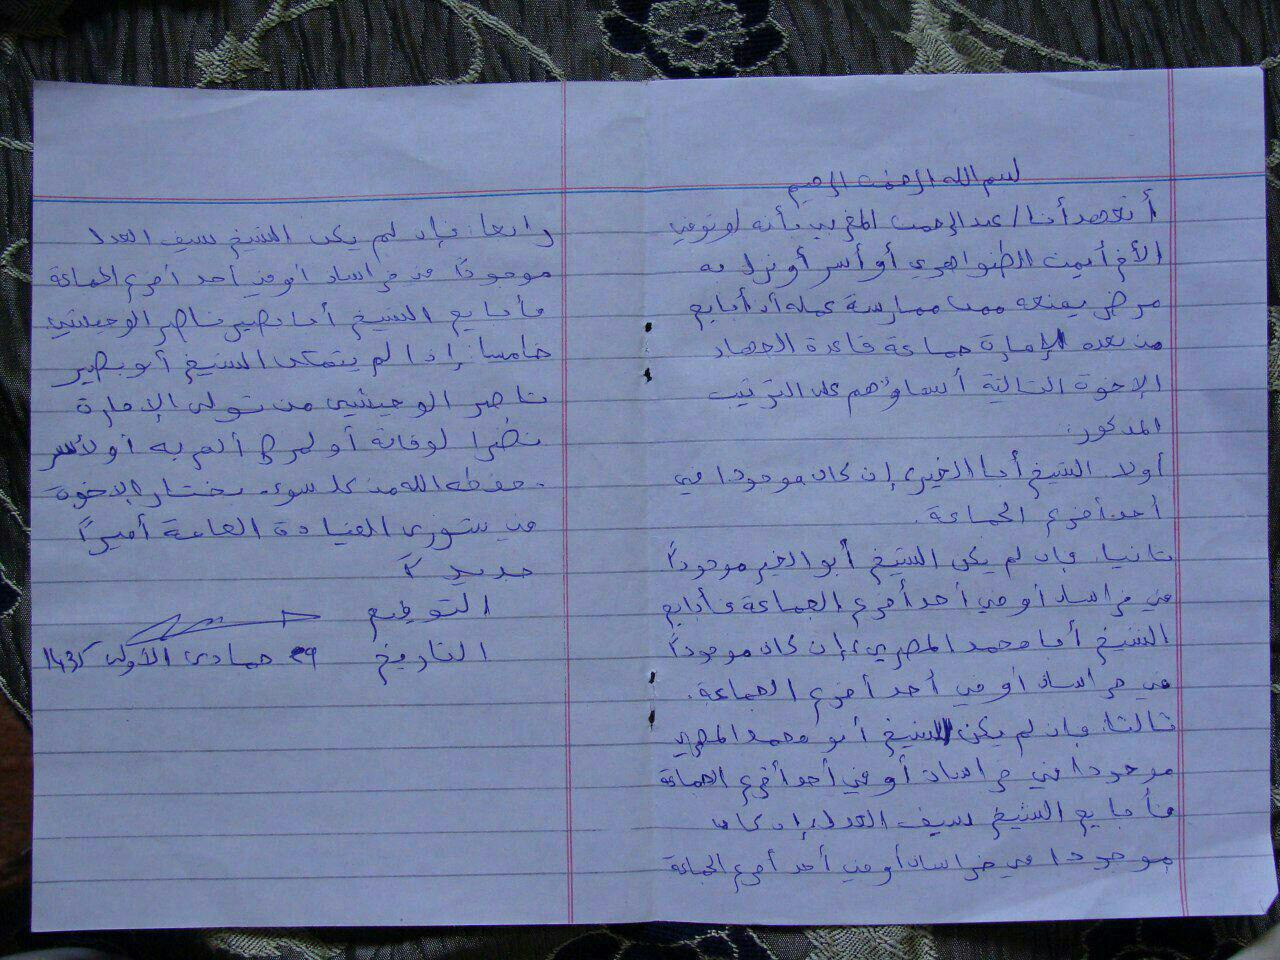 بسم الله الرحمن الرحيم
أتعهد أنا/عبد الرحمن المغربي بأنه لو توفي
الأخ أيمن الظواهري أو أسر أو نزل به
مرض يمنعه من ممارسة عمله أن أبايع
من بعده لإمارة جماعة قاعدة الجهاد
الإخوة التالية أسماؤهم على الترتيب
المذكور:
أولا. الشيخ أبا الخير، إن كان موجودا في
أحد أفرع الجماعة.
ثانيا. فإن لم يكن الشيخ أبو الخير موجوداً
في خراسان أو في أحد أفرع الجماعة فأبايع
الشيخ أبا محمد المصري، إن كان موجوداً
في خراسان أو في أحد أفرع الجماعة.
ثالثا. فإن لم يكن الشيخ أبو محمد المصري
موجودا في خراسان أو في أحد أفرع الجماعة
فأبايع الشيخ سيف العدل، إن كان
موجودا في خراسان أو في أحد أفرع الجماعة
رابعا. فإن لم يكن الشيخ سيف العدل
موجوداً في خراسان أو في أحد أفرع الجماعة
فأبايع الشيخ أبا بصير ناصر الوحيشي.
خامسا. إذا لم يتمكن الشيخ أبو بصير
ناصر الوحيشي من تولي الإمارة
نظرا لوفاته أو لمرض ألم به أو لأسر
-حفظه الله من كل سوء- يختار الإخوة
في شورى القيادة العامة أميراً
جديداً
التوقيع
التاريخ 29 جمادى الأولى 1435